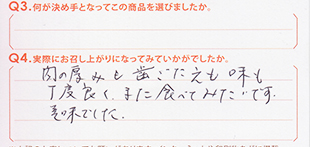 Q3.何が決め手となってこの商品を選びましたか。
Q4.実際にお召し上がりになってみていかがでしたか。
肉の厚みも歯ごたえも味も
丁度良く、また食べてみたいです。
美味でした。